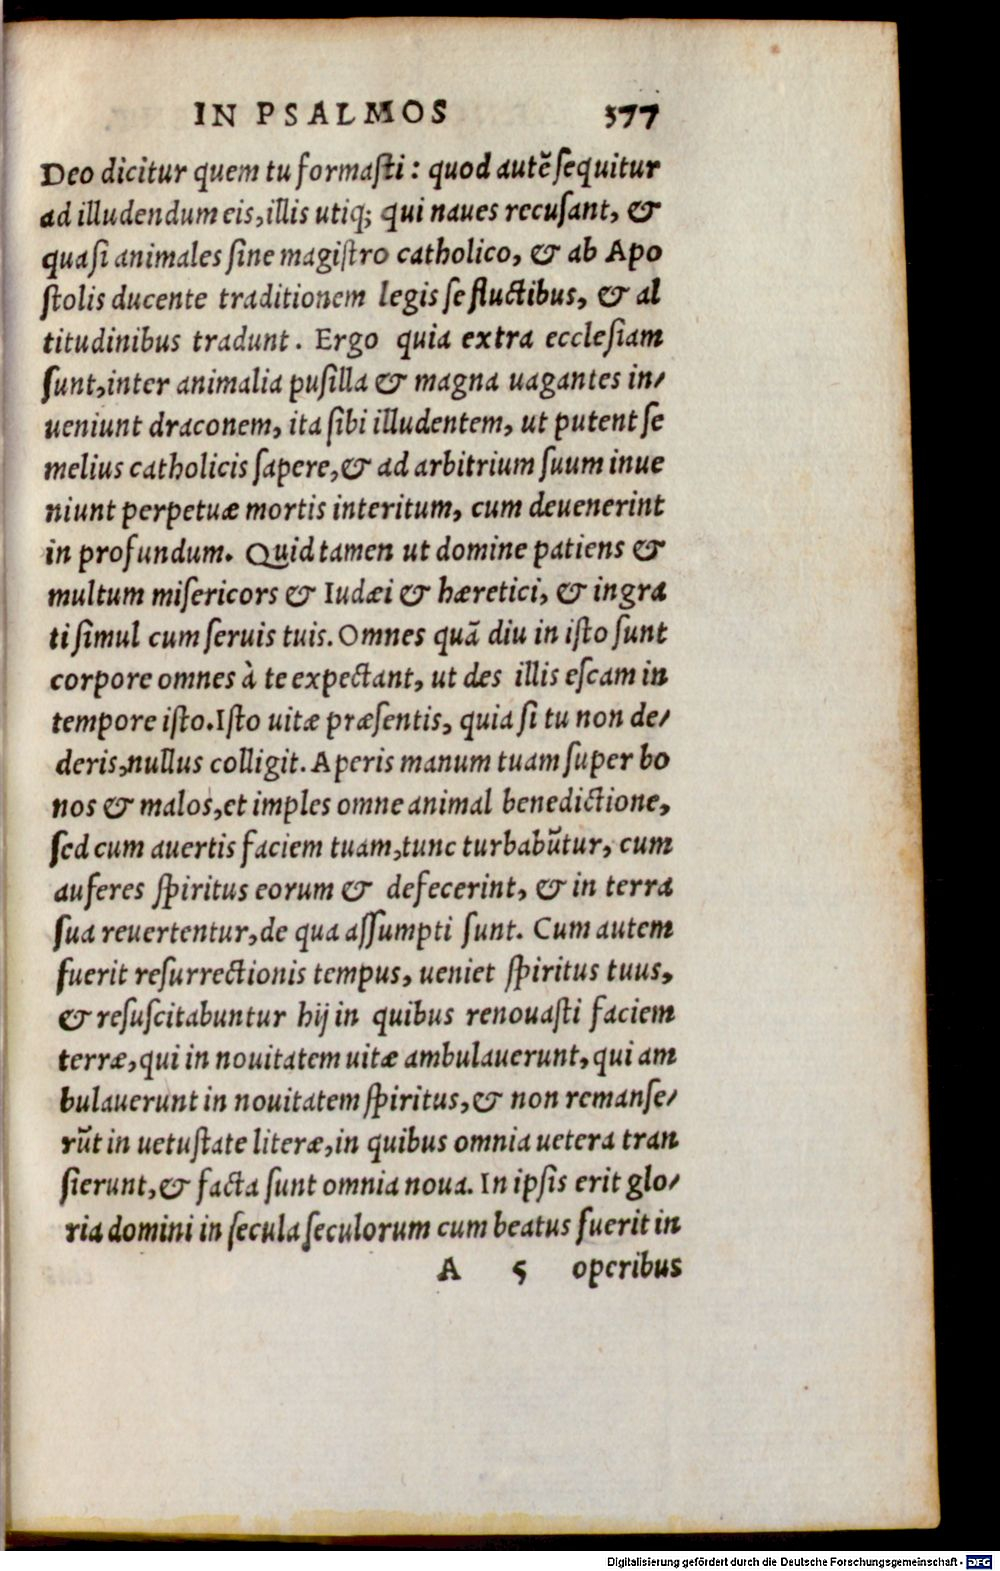 IN PSALMOS 377
Deo dicitur quem tu formaſti: quod autẽ ſequitur
ad illudendum eis, illis utiq; qui naues recuſant, &
quaſi animales ſine magiſtro catholico, & ab Apo
ſtolis ducente traditionem legis ſe fluctibus, & al
titudinibus tradunt. Ergo quia extra eccleſiam
ſunt, inter animalia puſilla & magna uagantes in/
ueniunt draconem, ita ſibi illudentem, ut putent ſe
melius catholicis ſapere, & ad arbitrium ſuum inue
niunt perpetuæ mortis interitum, cum deuenerint
in profundum. Quid tamen ut domine patiens &
multum miſericors & Iudæi & hæretici, & ingra
ti ſimul cum ſeruis tuis. Omnes quã diu in iſto ſunt
corpore omnes à te expectant, ut des illis eſcam in
tempore iſto. Iſto uitæ præſentis, quia ſi tu non de/
deris, nullus colligit. Aperis manum tuam ſuper bo
nos & malos, et imples omne animal benedictione,
ſed cum auertis faciem tuam, tunc turbabũtur, cum
auferes ſpiritus eorum & defecerint, & in terra
ſua reuertentur, de qua aſſumpti ſunt. Cum autem
fuerit reſurrectionis tempus, ueniet ſpiritus tuus,
& reſuſcitabuntur hij in quibus renouaſti faciem
terræ, qui in nouitatem uitæ ambulauerunt, qui am
bulauerunt in nouitatem ſpiritus, & non remanſe/
rũt in uetuſtate literæ, in quibus omnia uetera tran
ſierunt, & facta ſunt omnia noua. In ipſis erit glo/
ria domini in ſecula ſeculorum cum beatus fuerit in
A 5 operibus
Digitalisierung gefördert durch die Deutsche Forschungsgemeinschaft - DFG